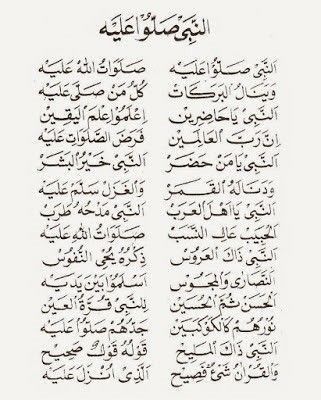 النَّبِيْ صَلُّوْا عَلَيْه
النَّبِيْ صَلُّوْا عَلَيْه صَلَوَاتُ اللهِ عَلَيْه
وَيَنَالُ الْبَرَكَات كُلُّ مَنْ صَلَّى عَلَيْه
النَّبِيْ يَا حَاضِرِيْن اِعْلَمُوْا عِلْمَ الْيَقِيْن
اِنَّ رَبَّ الْعَالَمِيْن فَرَضَ الصَّلَوَاتِ عَلَيْه
النَّبِيْ يَا مَنْ حَضَر النَّبِيْ خَيْرُ الْبَشَر
وَدَنَا لَهُ الْقَمَر وَالْغَزَلْ سَلَّمْ عَلَيْه
النَّبِيْ يَا اَهْلَ الْعَرَب النَّبِيْ مَدْحُهُ طَرَب
الْحَبِيْبْ عَالِى النَّسَب صَلَوَاتُ اللهِ عَلَيْه
النَّبِيْ ذَاكَ الْعَرُوْس ذِكْرُهُ يُحْيِ النُّفُوْس
النَّصَارَى وَالْمَجُوْس اَسْلَمُوْا بَيْنَ يَدَيْه
الْحَسَنْ ثُمَّ الْحُسَيْن لِلنَّبِيْ قُرَّةُ الْعَيْن
نُوْرُهُمْ كَالْكَوْكَبَيْن جَدُّهُمْ صَلُّوْا عَلَيْه
النَّبِيْ ذَاكَ الْمَلِيْح قَوْلُهُ قَوْلٌ صَحِيْح
وَالْقُرْاٰنْ شَىْءٌ فَصِيْح الَّذِى اُنْزِلَ عَلَيْه